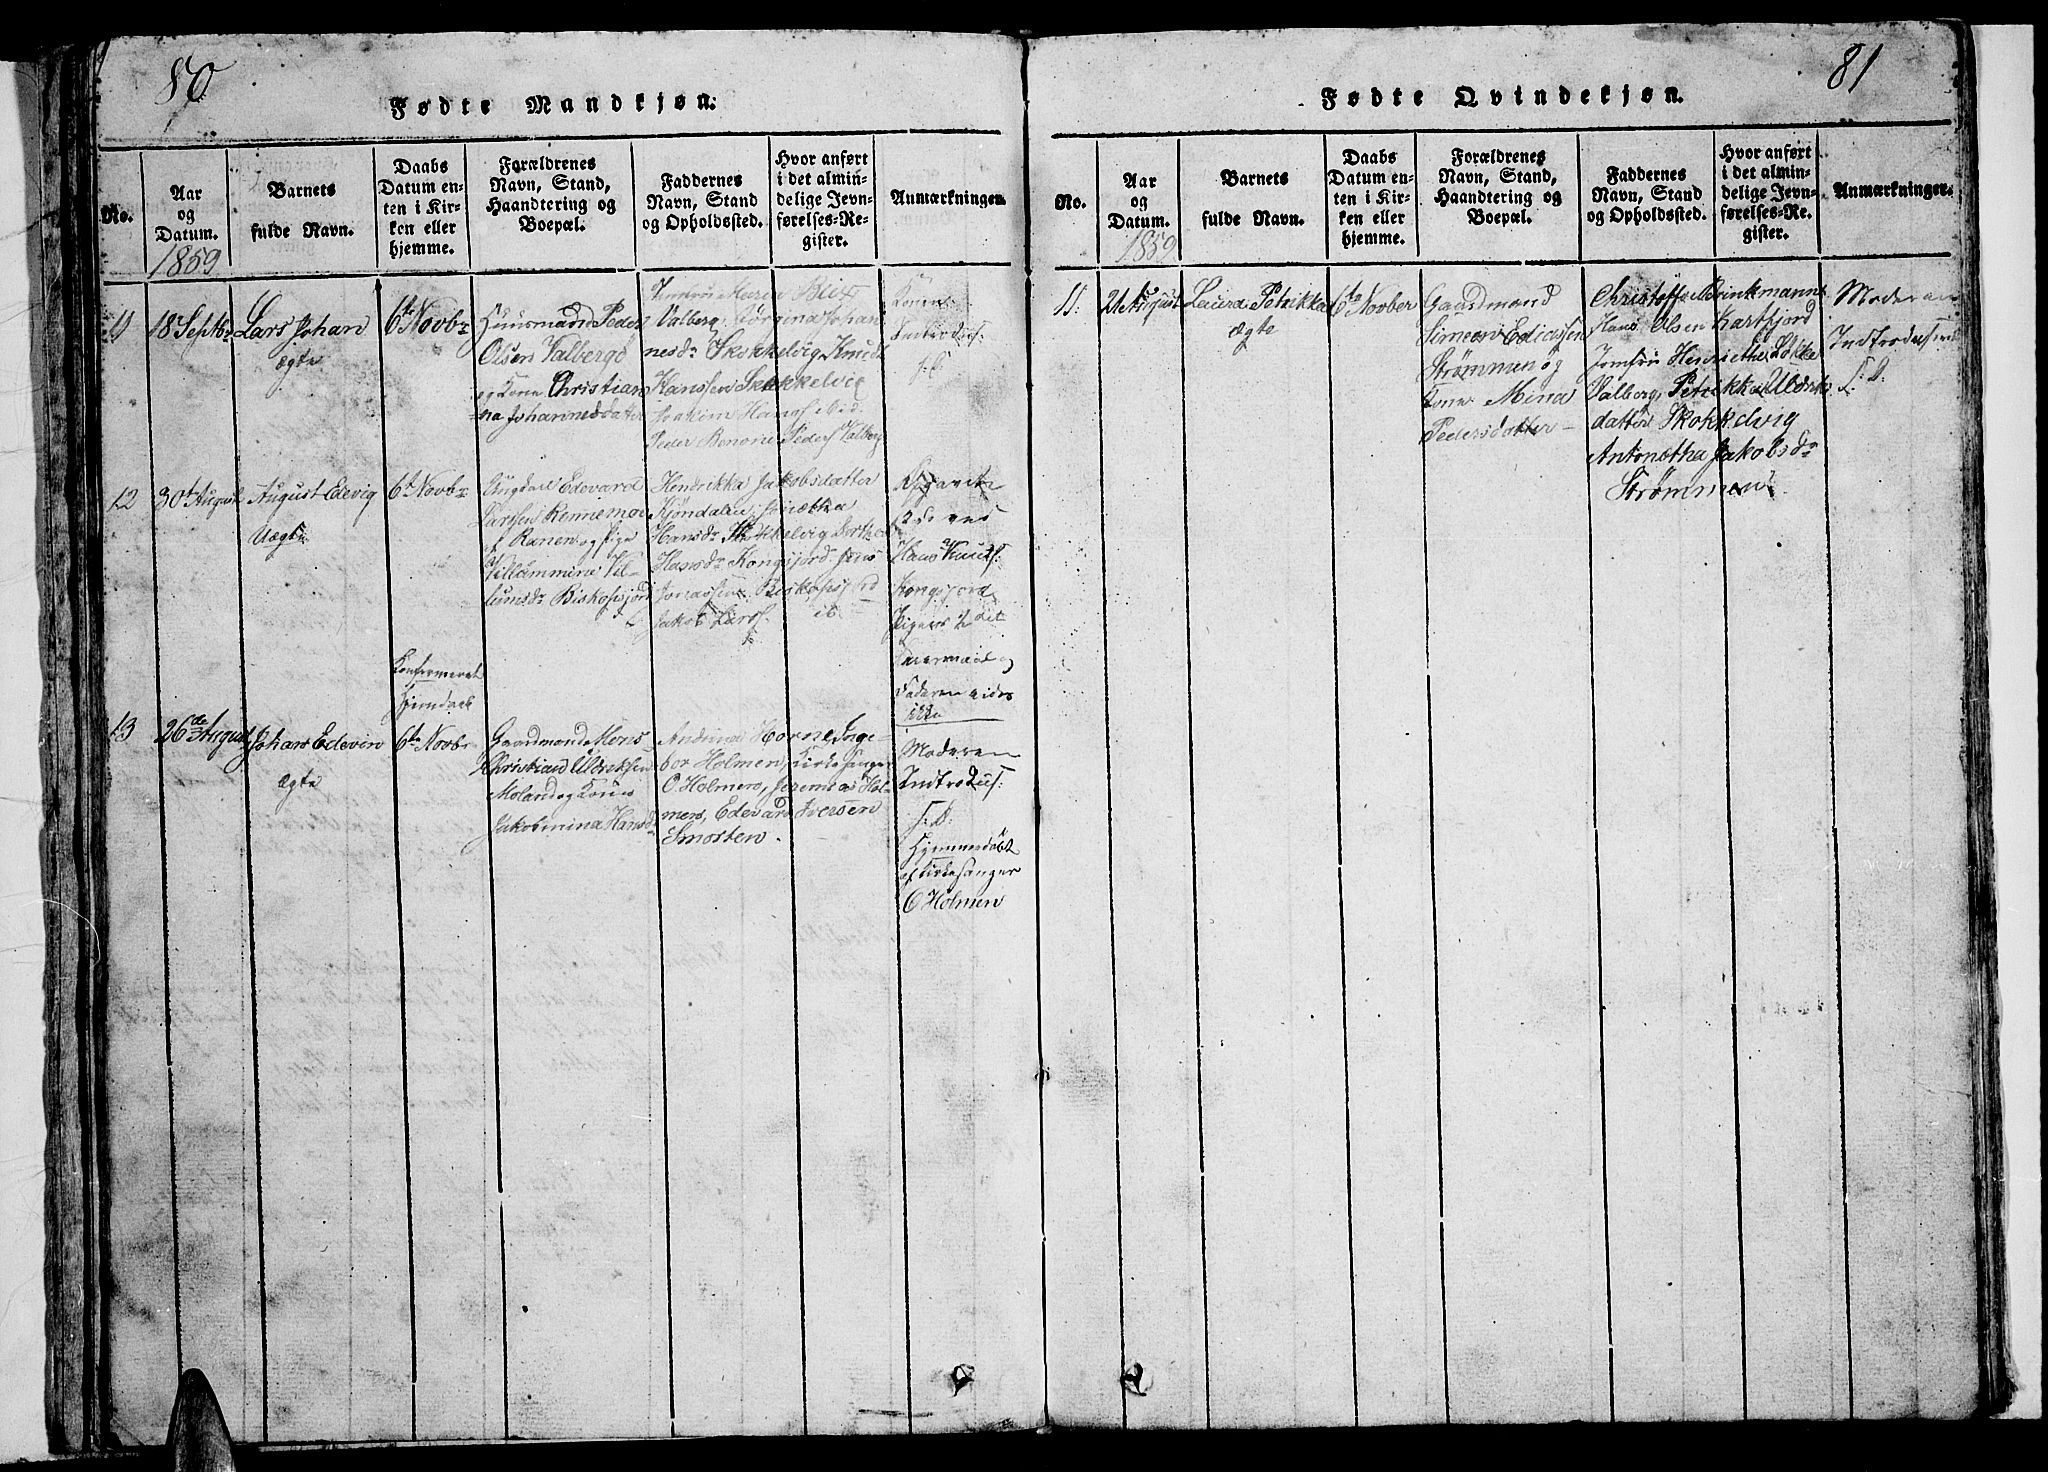 80
Fødte Mandkjøn.
No.
Aar
og
Datum.
1859
Barnets
fulde Navn.
Daabs
Datum en-
ten i Kir-
ken eller
hjemme.
Forældrenes
Navn, Stand,
Haandtering og
Boepæl.
Faddernes
Navn, Stand
og Opholdssted.
Hvor anført
i det almin-
delige Jevn-
førelses-Re-
gister.
Anmærkninger.
11
18 Septbr
Lars Johan
ægte
6te Novbr
Huusmand Peder
Olsen Valberg
og Kone Christian
na Johannesdatter
Jomfru Maria Blix
Valberg, Jørgina Johan
nesdr Skokkelvig, Knud
Hanssen Skokkelvig
Joakim Hanss
Peder Benone Peders Valberg
Konen
Introdus.
s: D
12
30te August
August Edevig
Uægte
6te Novbr
Ungkarl Edevard
Larssen Rennemo
af Ranen og Pige
Villummine Vil-
lumsdr Biskopsfjord
Hendrikka Jakobsdatter
Kjøndalen,
Hansdr Skokkelvig
Hansdr Kongsfjord Jens
Jonassen Biskopsfjord
Jakob Larss. it
Hans Knuds:
Kongsfjord
Pigens 2det
Leiermaal og
Faderen vides
ikke
Konfermeret
Hjemdaab
13
26de August
Johan Edevin
ægte
6te Novbr
Gaardmand Mons
Christian Ulriksen
Moland og Kone
Jakobmina Hansdr
Andrina Horn, Inge-
bor Holmen, Kirkesanger
O Holmen, Jeremias Hol-
men, Edevard Iversen
Smorten.
Moderen
Indtrodus:
s: D:
Hjemmedøbt
af Kirkesanger
O Holmen
81
Fødte Qvindekjøn.
No.
Aar
og
Datum.
1859
Barnets
fulde Navn.
Daabs
Datum en-
ten i Kir-
ken eller
hjemme.
Forældrenes
Navn, Stand,
Haandtering og
Boepæl.
Faddernes
Navn, Stand
og Opholdssted.
Hvor anført
i det almin-
delige Jevn-
førelses-Re-
gister.
Anmærkninger.
11.
21 August
Laura Petrikka
ægte
6te Novber
Gaardmand
Simeon Ediassen
Strømmen og
Kone Mina
Pedersdatter
Christoffer Brinkmann
Hans Olsen Kartfjord
Jomfru Henriethe Løkke
Valberg, Petrikka Ulriks
datter Skokkelvig
Antonetha Jakobsdr
Strømmen
Moderen
Indtroduseret
S. D.